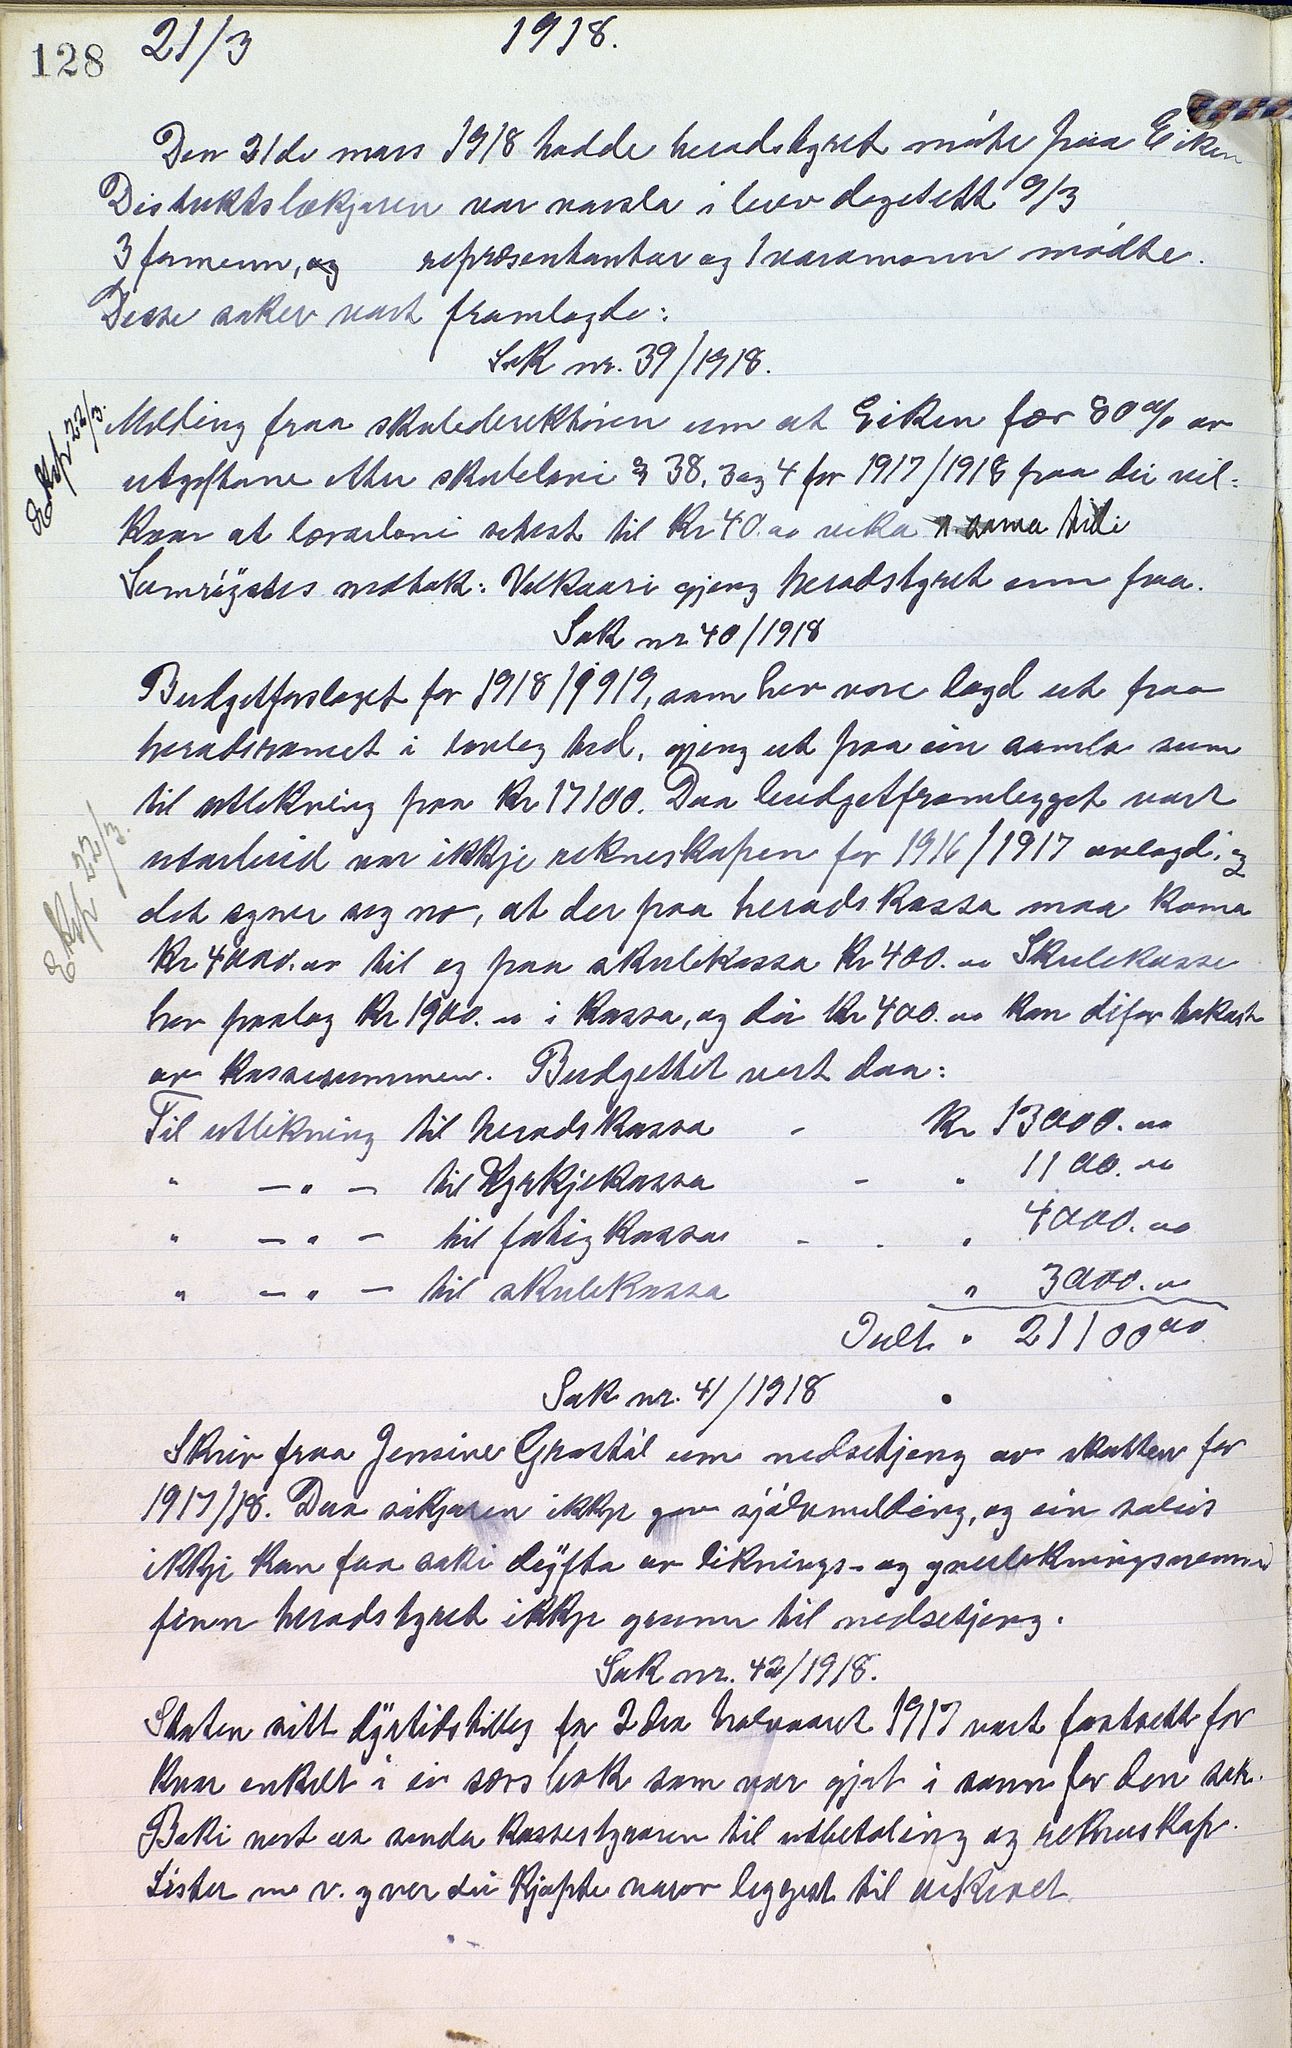 128 21/3 1918.
Den 21de mars 1918 hadde heradstyret møte paa Eiken
Distriktslækjaren var varsla i brev dagsett 9/3
3 formenn, og repræsentantar og 1 varamann møtte.
Desse saker vart framlagde:
Sak nr. 39/1918.
Eksp 22/3.
Melding fraa skuledirektøren um at Eiken fær 80 % av
utgiftane etter skulelovi § 38, 3 og 4 for 1917/1918 paa dei vil-
kaar at lærarløni setest til Kr 40.00 veka sama tidi
Samrøystes vedtak: Vilkaari gjeng heradstyret inn paa.
Sak nr 40/1918
Eksp 22/3.
Budgetforslaget for 1918/1919, som hev vore lagd ut fraa
heradsromet i lovleg tid, gjeng ut paa ein samla sum
til utlikning paa Kr 17100. Daa budgetframlegget vart
utarbeid var ikkje rekneskapen for 1916/1917 avlagd, og
det syner seg no, at der paa heradskassa maa koma
Kr 4000.00 til og paa skulekassa Kr 400.00 Skulekassa
hev paalag Kr 1900.00 i kassa, og dei Kr 400.00 kan difor takast
av kassesummen. Budgettet vert daa:
Til utlikning til heradskassa - Kr 13000.00
" — " — til Kyrkjekassa - " 1100.00
" — " — til fatigkassa - - " 4000.00
" — " — til skulekassa " 3000.00
Ialt " 21100 00
Sak nr. 41/1918
Skriv fraa Jensine Grastøl um nedsetjing av skatten for
1917/18. Daa søkjaren ikkje gav sjølvmelding, og ein soleis
ikkje kan faa saki drøfta av liknings- og yverlikningsnemnd
finn heradstyret ikkje grunn til nedsetjing.
Sak nr. 42/1918.
Staten sitt dyrtidstillegg for 2dra halvaaret 1917 vart fastsett for
kvar enkelt i ei særs bok som var gjort i stand for den sak.
Boki vert aa senda kassestyraren til utbetaling og rekneskap.
Lister m. v. yver dei kjøpte varor leggest til arkivet.